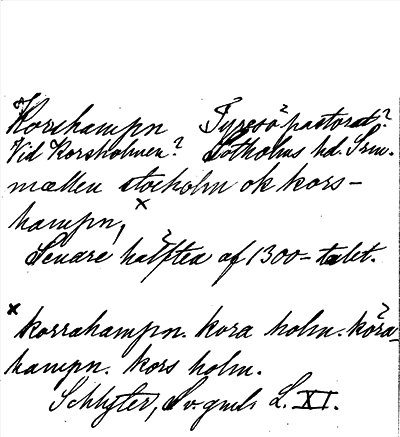 Korshampn Tyresö pastorat?
Vid Korsholmen? Sotholms hd. Srm.
mællen stocholm ok kors-
hampn,x
Senare hälften af 1300-talet.
x korsahampn. kora holm. köra-
hampn. kors holm.
Schlyter, Sv. gmls L. XI.